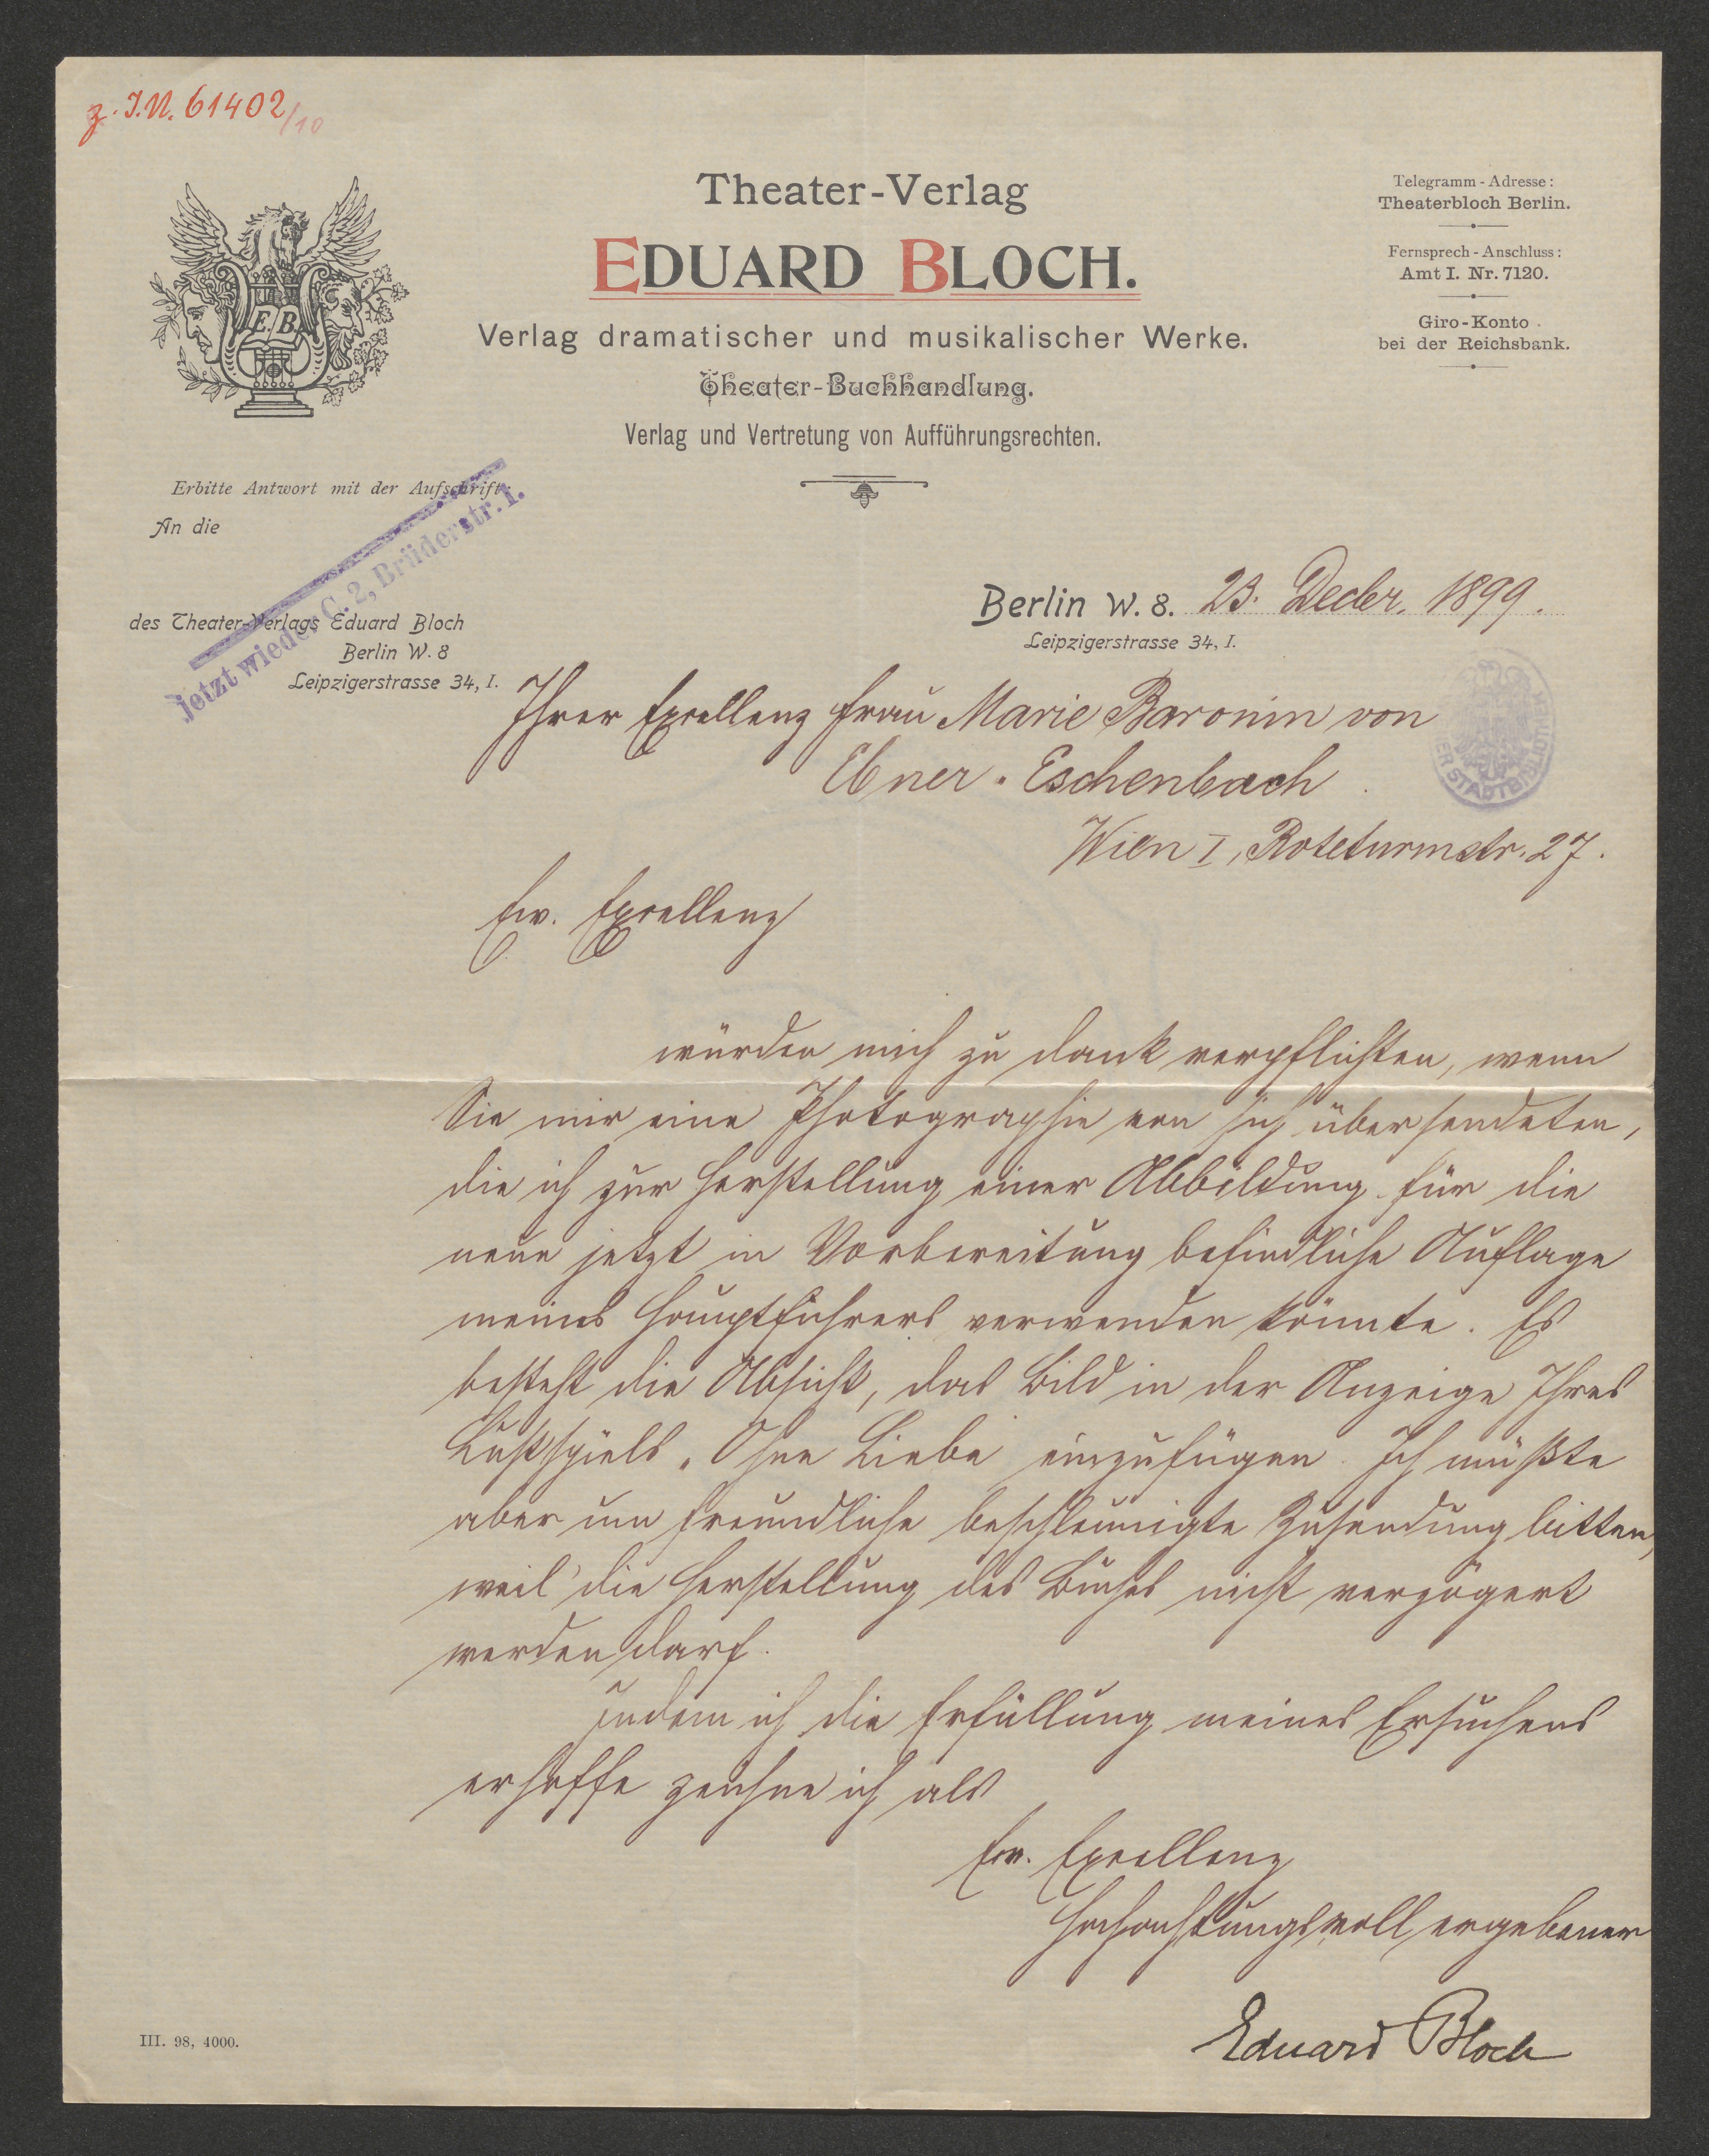 z. I.N. 61402/10
Theater-Verlag
EDUARD BLOCH.
Verlag dramatischer und musikalischer Werke.
Theater-Buchhandlung.
Verlag und Vertretung von Aufführungsrechten.
E.B.
Telegramm-Adresse:
Theaterbloch Berlin.
Fernsprech-Anschluss:
Amt I. Nr. 7120.
Giro-Konto
bei der Reichsbank.
Erbitte Antwort mit der Aufschrift:
An die
des Theater-Verlags Eduard Bloch
Berlin W. 8
Leipzigerstrasse 34, I.
Jetzt wieder C. 2, Brüderstr. 1.
Berlin W. 8. 23. Decbr. 1899.
Leipzigerstrasse 34, I.
Ihrer Excellenz Frau Marie Baronin von
Ebner-Eschenbach
Wien I, Roteturmstr. 27.
Ew. Excellenz
würden mich zu Dank verpflichten, wenn
Sie mir eine Photographie von sich übersendeten,
die ich zur Herstellung einer Abbildung für die
neue jetzt in Vorbereitung befindliche Auflage
meines Hauptführers verwenden könnte. Es
besteht die Absicht, das Bild in der Anzeige Ihres
Lustspiels „Ohne Liebe einzufügen. Ich müßte
aber um freundliche beschleunigte Zusendung bitten,
weil die Herstellung des Buches nicht verzögert
werden darf.
Indem ich die Erfüllung meines Ersuchens
erhoffe zeichne ich als
Ew. Excellenz
hochachtungsvoll ergebener
Eduard Bloch
III. 98, 4000.